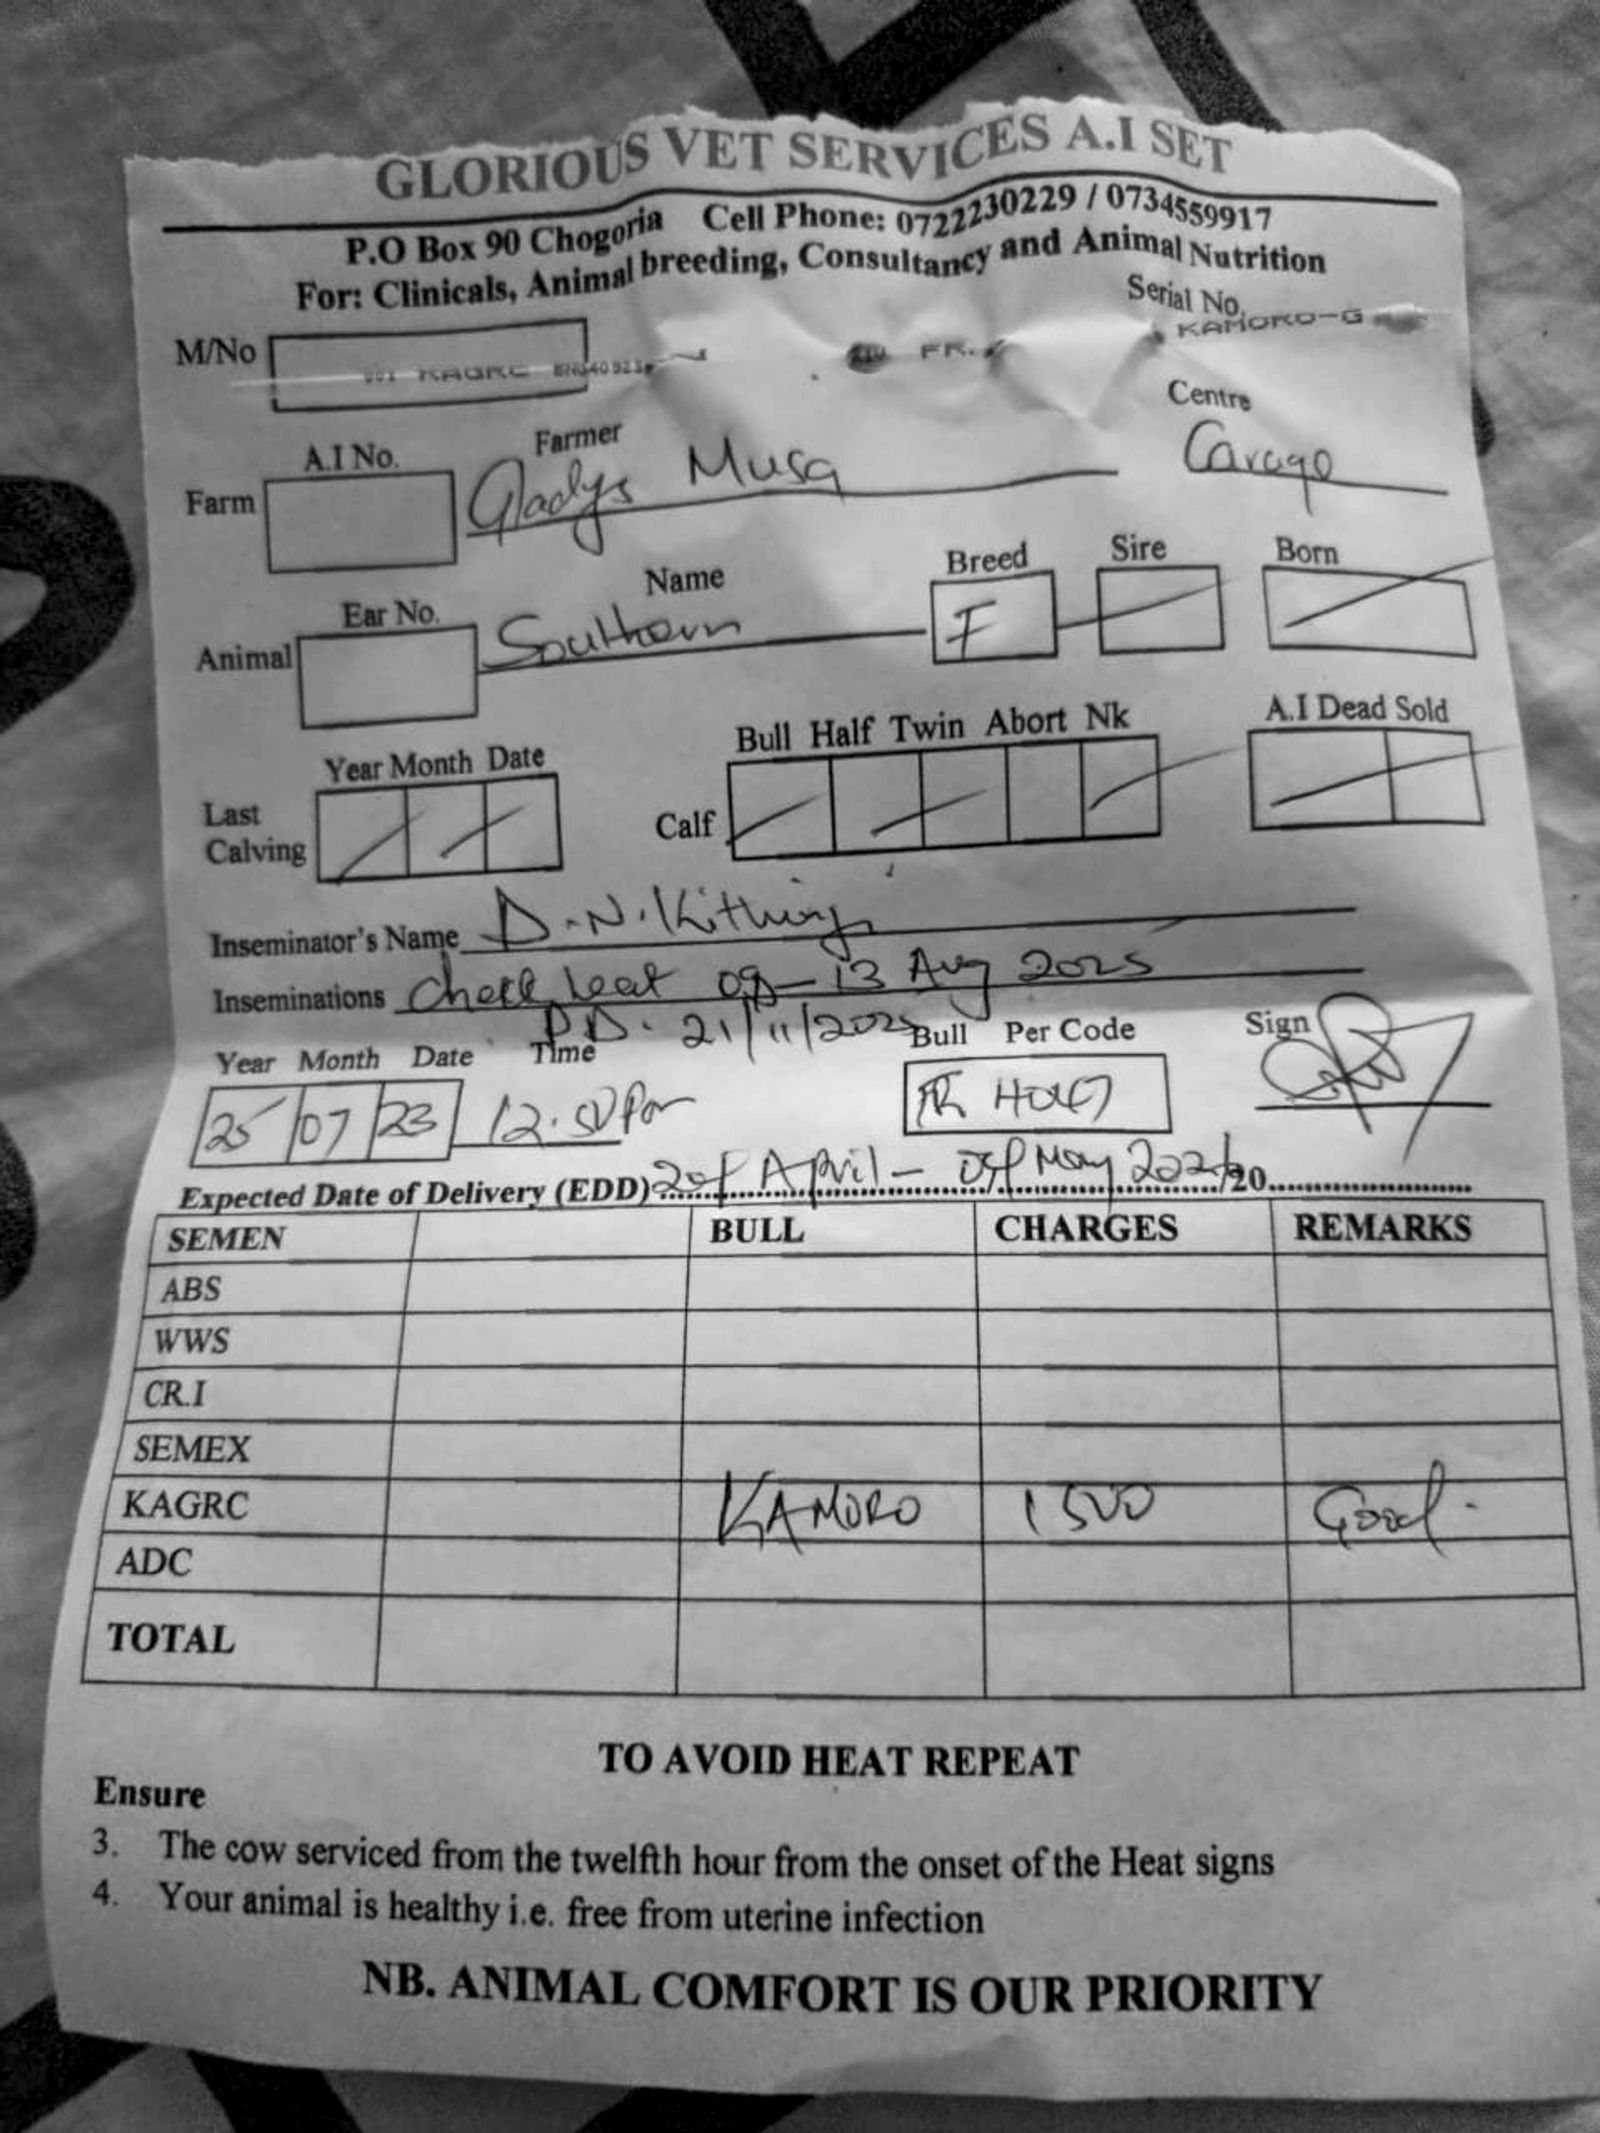 GLORIOUS VET SERVICES A.I SET
P.O Box 90 Chogoria Cell Phone: 0722230229 / 0734559917
For: Clinicals, Animal breeding, Consultancy and Animal Nutrition
Serial No.
KAMORO-G
M/No
KAGRC
FR.
Centre
A.I No. Farmer
Farm Gladys Musa
Ear No. Name Breed Sire Born
Animal Southern F
Year Month Date Bull Half Twin Abort Nk A.I Dead Sold
Last Calving Calf
Inseminator's Name D.N.
Inseminations Check heat 09-13 Aug 2025
P.D. 21/11/2025
Year Month Date Time Bull Per Code Sign
25 07 23 12.50 Pm FR
Expected Date of Delivery (EDD) April - May /20
SEMEN BULL CHARGES REMARKS
ABS
WWS
CR.I
SEMEX
KAGRC KAMORO 1500 Good.
ADC
TOTAL
TO AVOID HEAT REPEAT
Ensure
3. The cow serviced from the twelfth hour from the onset of the Heat signs
4. Your animal is healthy i.e. free from uterine infection
NB. ANIMAL COMFORT IS OUR PRIORITY